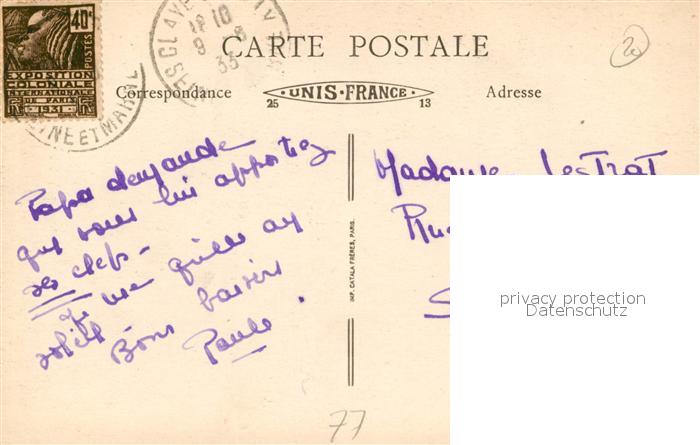 40c
POSTES
EXPOSITION
COLONIALE
INTERNATIONALE
DE PARIS
1931
CLAYE
18 10
9
33
SEINE ET MARNE
CARTE POSTALE
20
Correspondance
UNIS-FRANCE
25
13
Adresse
Papa demande
que vous lui apportiez
ses clefs -
Je
soleil
Bons baisers
Paule.
IMP. CATALA FRÈRES, PARIS.
Madame Lestrat
Ru
S
privacy protection
Datenschutz
77